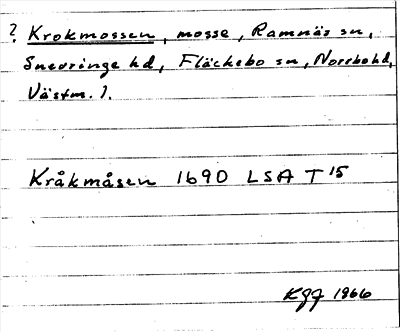 ? Krokmossen, mosse, Ramnäs sn,
Snevringe hd, Fläckebo sn, Norrbo hd,
Västm. l.
Kråkmåsen 1690 LSA T 15
KGJ 1966